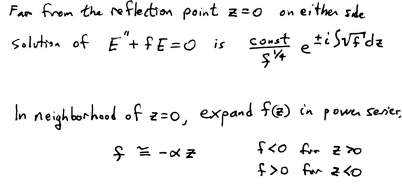 Far from the reflection point z=0 on either side
solution of E"+fE=0 is const/f^1/4 e^±i∫√f dz
In neighborhood of z=0, expand f(z) in power series,
f ≅ -αz f<0 for z>0
f>0 for z<0